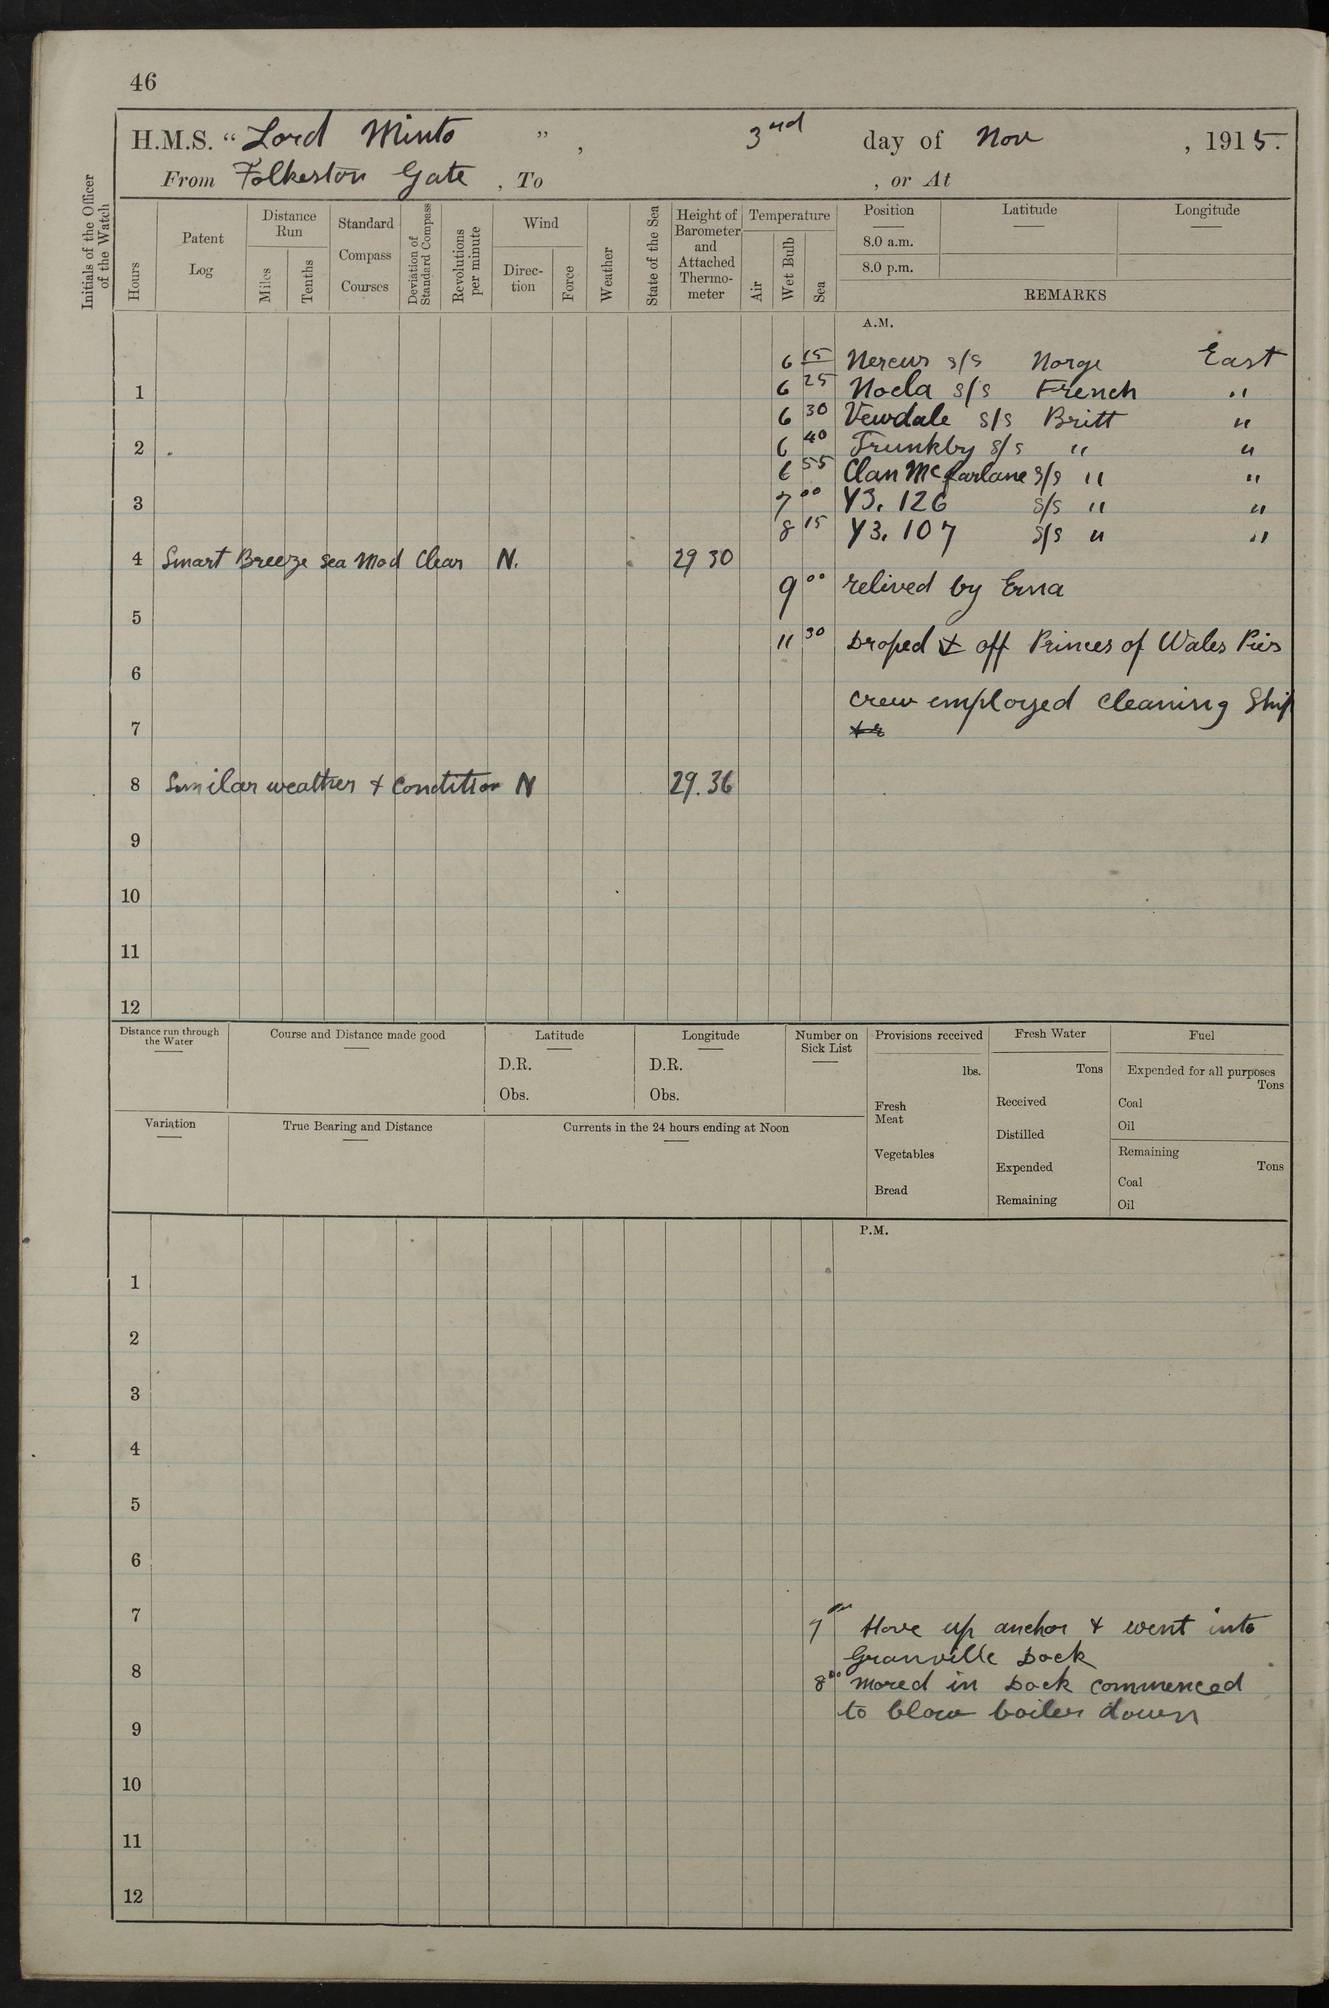 46
H.M.S. “Lord Minto”, 3rd day of Nov, 1915.
From Folkeston Gate, To , or At
Initials of the Officer of the Watch
Hours
Patent Log
Distance Run
Miles
Tenths
Standard Compass Courses
Deviation of Standard Compass
Revolutions per minute
Wind
Direction
Force
Weather
State of the Sea
Height of Barometer and Attached Thermometer
Temperature
Air
Wet Bulb
Sea
Position Latitude Longitude
8.0 a.m.
8.0 p.m.
REMARKS
A.M.
6 15 Nereus s/s Norge East
1 6 25 Noela s/s French "
6 30 Vewdale s/s Britt "
2 6 40 Trunkby s/s " "
6 55 Clan McFarlane s/s " "
3 7 00 Y3. 126 s/s " "
8 15 Y3. 107 s/s " "
4 Smart Breeze Sea Mod Clear N. 29 30
9 00 relived by Erna
5
11 30 Droped ⚓ off Princes of Wales Pier
6
crew employed cleaning Ship
7
8 Similar weather & Condition N 29.36
9
10
11
12
Distance run through the Water Course and Distance made good Latitude Longitude Number on Sick List Provisions received Fresh Water Fuel
D.R. D.R. lbs. Tons Expended for all purposes Tons
Obs. Obs. Fresh Meat Received Coal
Oil
Variation True Bearing and Distance Currents in the 24 hours ending at Noon Distilled
Vegetables Expended Remaining Tons
Coal
Bread Remaining Oil
P.M.
1
2
3
4
5
6
7 7 00 Hove up anchor & went into
Granville Dock
8 8 00 Mored in Dock commenced
to blow boiler down
9
10
11
12